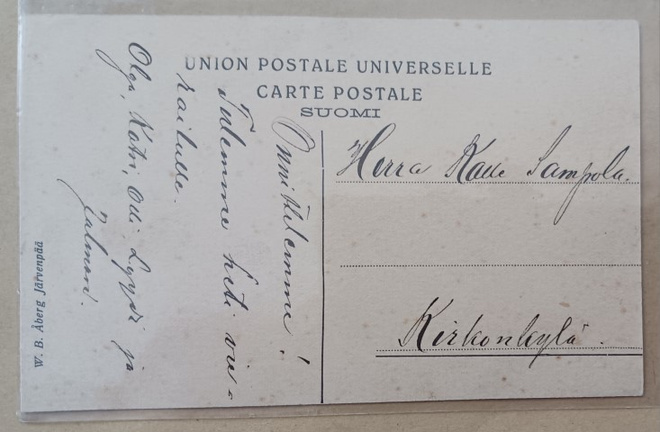 UNION POSTALE UNIVERSELLE
CARTE POSTALE
SUOMI
Onnittelemme!
Tulemme heti vie-
railulle.
Olga, Katri, Olli, Lyydi ja
Salmon.
Herra Kalle Sampola.
Kirkonkylä.
W. B. Åberg Järvenpää